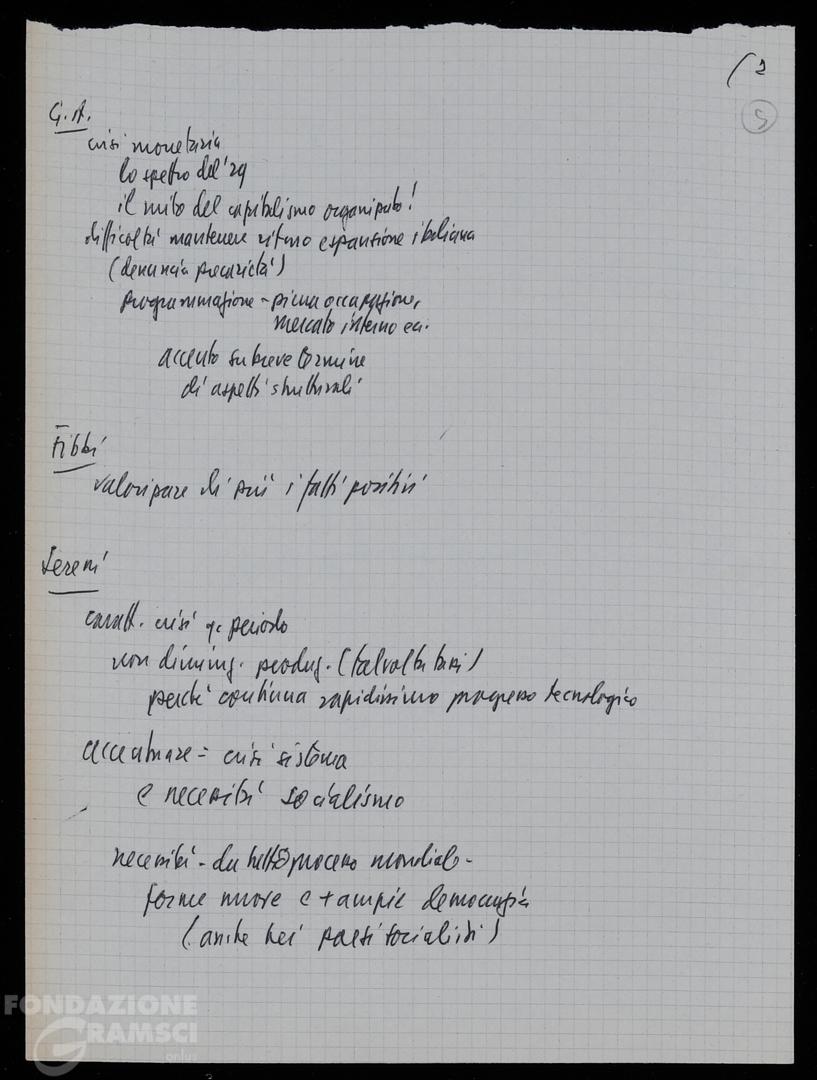 (2
5
G.A.
crisi monetaria
lo spettro del '29
il mito del capitalismo organizzato!
difficoltà mantenere ritmo espansione italiana
(denuncia precarietà)
programmazione - piena occupazione,
mercato interno ecc.
accento su breve termine
di aspetti strutturali
Fibbi
valorizzare di più i fatti positivi
Sereni
caratt. crisi q. periodo
non diminuz. produz. (talvolta
perché continua rapidissimo progresso tecnologico
accentuare = crisi sistema
e necessità socialismo
necessità - da tutto processo mondiale -
forme nuove e + ampie democrazia
(anche nei paesi socialisti)
FONDAZIONE
GRAMSCI
onlus